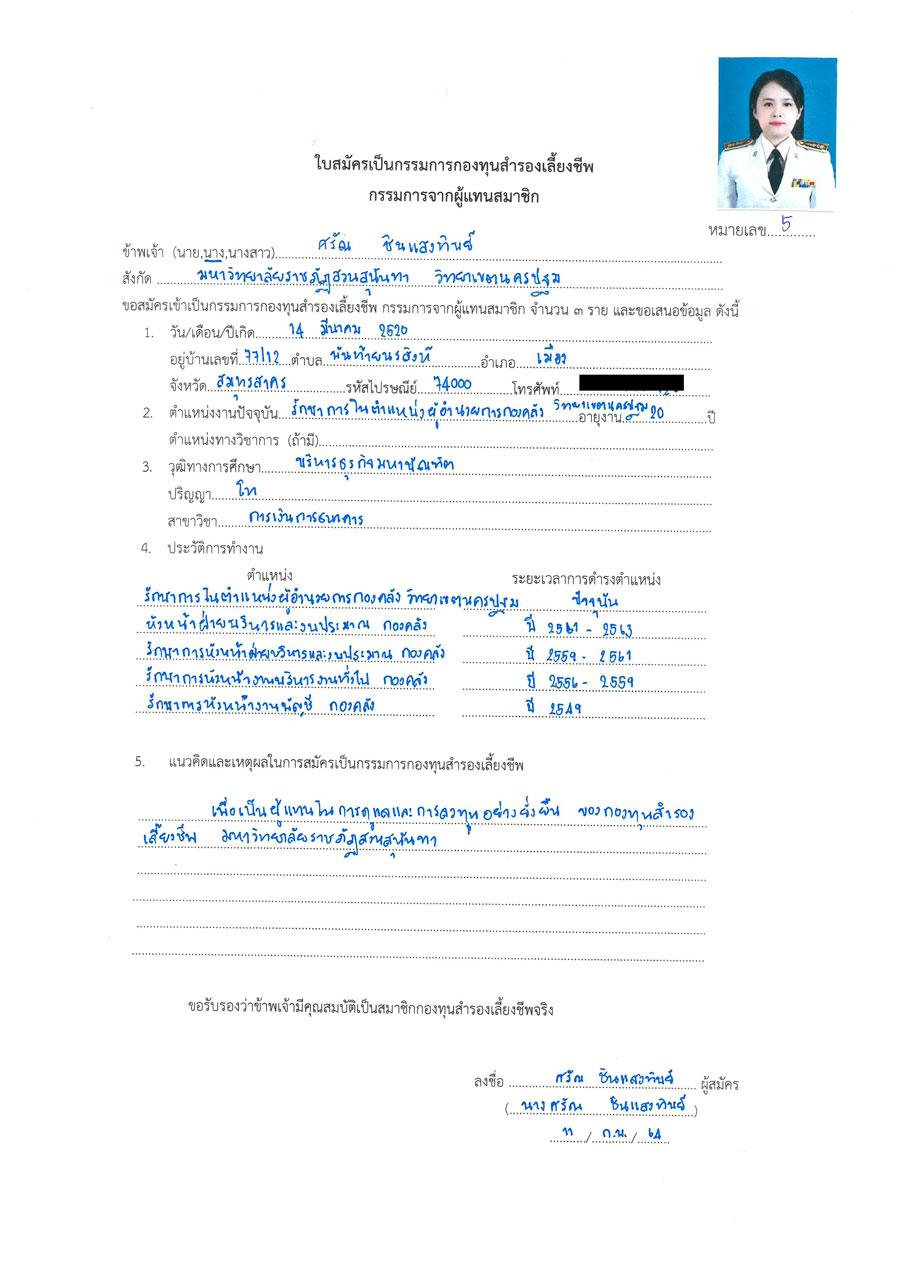 ใบสมัครเป็นกรรมการกองทุนสำรองเลี้ยงชีพ
กรรมการจากผู้แทนสมาชิก
หมายเลข 5
ข้าพเจ้า (นาย,นาง,นางสาว) ศรัณ ชินแสงทิพย์
สังกัด มหาวิทยาลัยราชภัฏสวนสุนันทา วิทยาเขตนครปฐม
ขอสมัครเข้าเป็นกรรมการกองทุนสำรองเลี้ยงชีพ กรรมการจากผู้แทนสมาชิก จำนวน ๓ ราย และขอเสนอข้อมูล ดังนี้
1. วัน/เดือน/ปีเกิด 14 มีนาคม 2520
อยู่บ้านเลขที่ 77/12 ตำบล พันท้ายนรสิงห์ อำเภอ เมือง
จังหวัด สมุทรสาคร รหัสไปรษณีย์ 74000 โทรศัพท์
2. ตำแหน่งงานปัจจุบัน รักษาการในตำแหน่งผู้อำนวยการกองคลัง วิทยาเขตนครปฐม อายุงาน 20 ปี
ตำแหน่งทางวิชาการ (ถ้ามี)
3. วุฒิทางการศึกษา บริหารธุรกิจมหาบัณฑิต
ปริญญา โท
สาขาวิชา การเงินการธนาคาร
4. ประวัติการทำงาน
ตำแหน่ง ระยะเวลาการดำรงตำแหน่ง
รักษาการในตำแหน่งผู้อำนวยการกองคลัง วิทยาเขตนครปฐม ปัจจุบัน
หัวหน้าฝ่ายบริหารและงบประมาณ กองคลัง ปี 2561 - 2563
รักษาการหัวหน้าฝ่ายบริหารและงบประมาณ กองคลัง ปี 2559 - 2561
รักษาการหัวหน้างานบริหารงานทั่วไป กองคลัง ปี 2556 - 2559
รักษาการหัวหน้างานบัญชี กองคลัง ปี 2549
5. แนวคิดและเหตุผลในการสมัครเป็นกรรมการกองทุนสำรองเลี้ยงชีพ
เพื่อเป็นผู้แทนในการดูแลและการลงทุนอย่างยั่งยืน ของกองทุนสำรอง
เลี้ยงชีพ มหาวิทยาลัยราชภัฏสวนสุนันทา
ขอรับรองว่าข้าพเจ้ามีคุณสมบัติเป็นสมาชิกกองทุนสำรองเลี้ยงชีพจริง
ลงชื่อ ศรัณ ชินแสงทิพย์ ผู้สมัคร
(นางศรัณ ชินแสงทิพย์)
11 / ก.พ. / 64